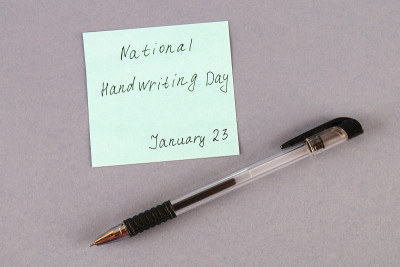 National
Handwriting Day
January 23